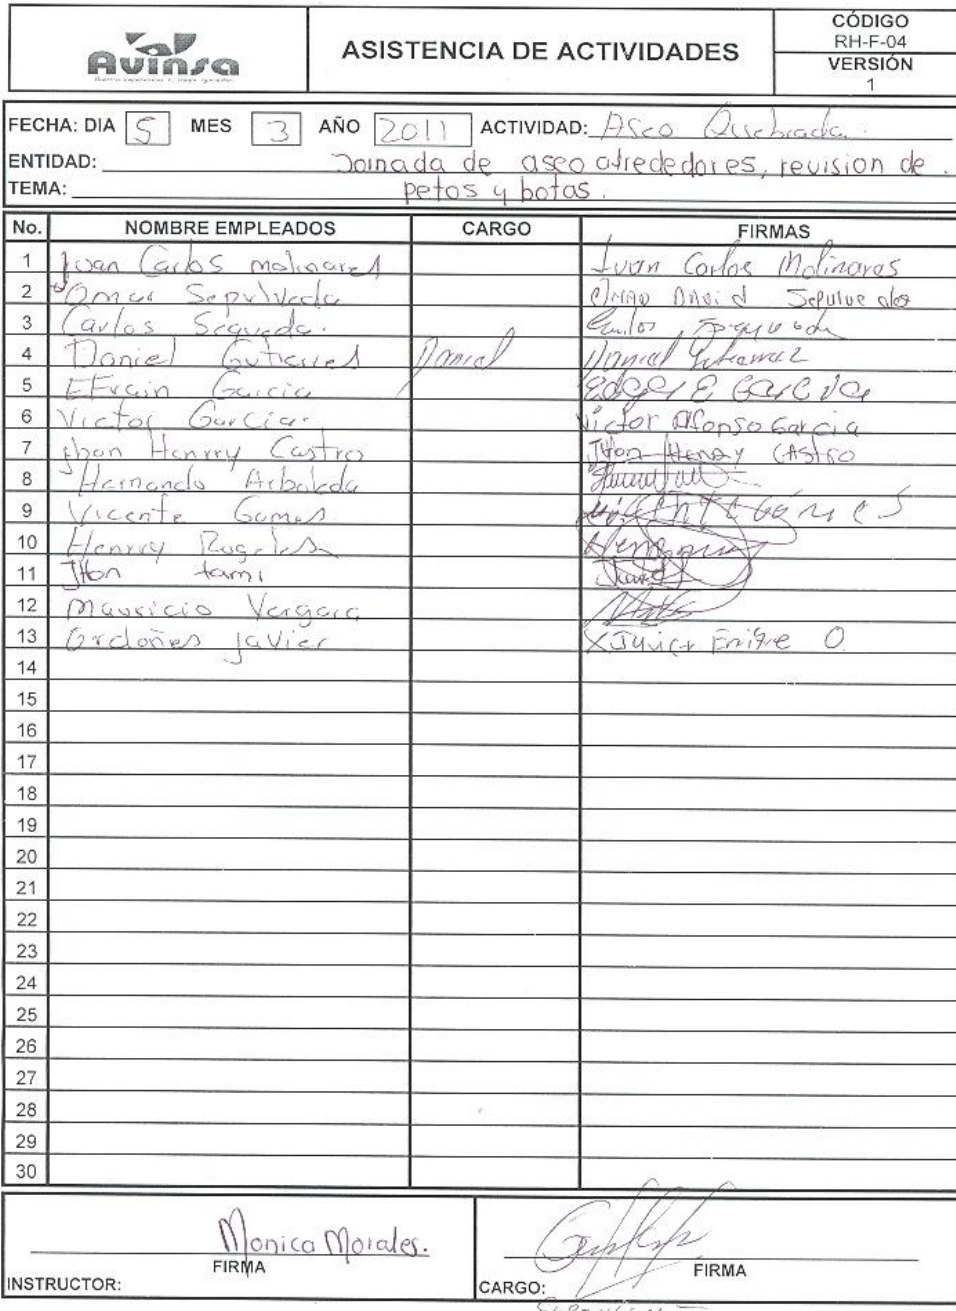 Avinsa
ASISTENCIA DE ACTIVIDADES
CÓDIGO
RH-F-04
VERSIÓN
1
FECHA: DIA 5 MES 3 AÑO 2011 ACTIVIDAD: Aseo Quebrada.
ENTIDAD: Jornada de aseo alrededores, revision de
TEMA: petos y botas.
No. NOMBRE EMPLEADOS CARGO FIRMAS
1 Juan Carlos molinares Juan Carlos Molinares
2 Omar Sepulveda Omar David Sepulveda
3 Carlos Sequeda. Carlos Sequeda
4 Daniel Gutierres Daniel Daniel Gutierrez
5 EFrain Garcia Edger E Garcia
6 Victor Garcia. Victor Alfonso Garcia
7 Jhon Henrry Castro JHon Henry CAStro
8 Hernando Arboleda
9 Vicente Gomes Vicente Gómes
10 Henrry Rogeles
11 JHon tami
12 Mauricio Vergara
13 Ordoñes Javier X Javier Enrique O.
14
15
16
17
18
19
20
21
22
23
24
25
26
27
28
29
30
Monica Morales.
FIRMA FIRMA
INSTRUCTOR: CARGO: